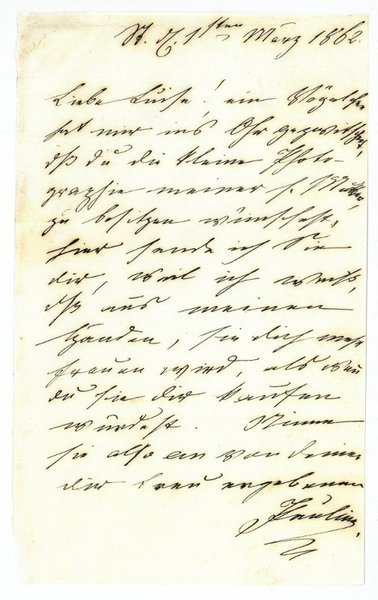 St. d. 1sten März 1862.
Liebe Luise! ein Vögelchen
hat mir ins Ohr gezwitschert,
dß du die kleine Photo-
graphie meiner s. Mutter,
zu besitzen wünschest,
hier sende ich Sie
dir, weil ich weiß,
dß aus meinen
Händen, sie dich mehr
freuen wird, als wenn
du sie dir kaufen
würdest. Nimm
sie also an von deiner
dir treu ergebenen
Pauline.